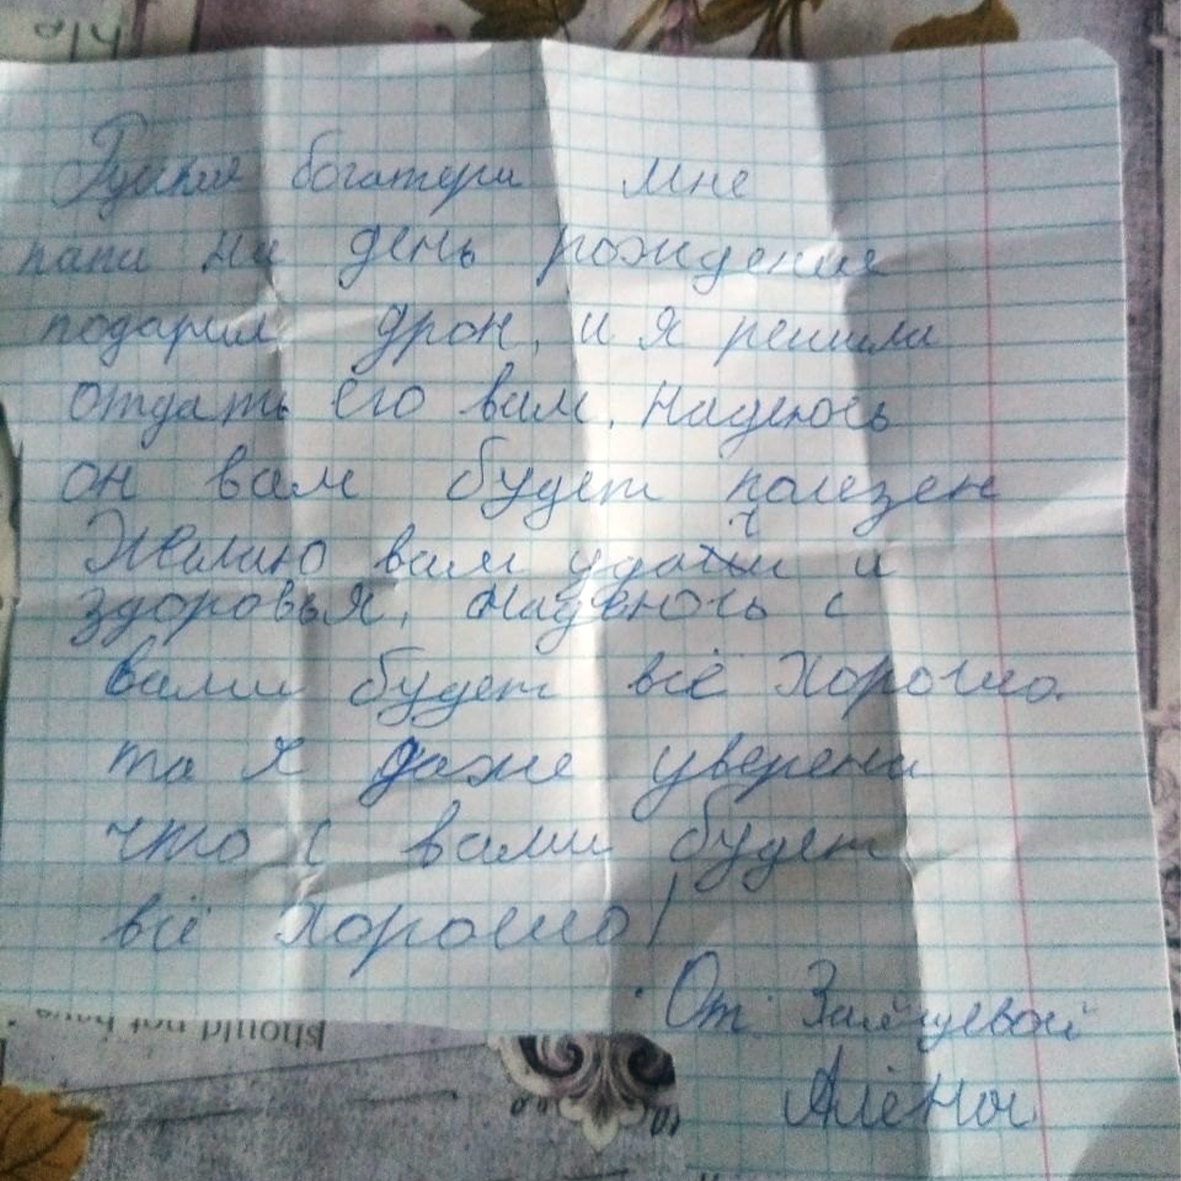 Руские богатери мне
папа на день рождения
подарил дрон, и я решила
отдать его вам, надеюсь
он вам будет полезен
Желаю вам удачи и
здоровья, надеюсь с
вами будет всё хорошо
та я даже уверена
что с вами будет
всё хорошо!
От Зайцевой
Алёны
should not have